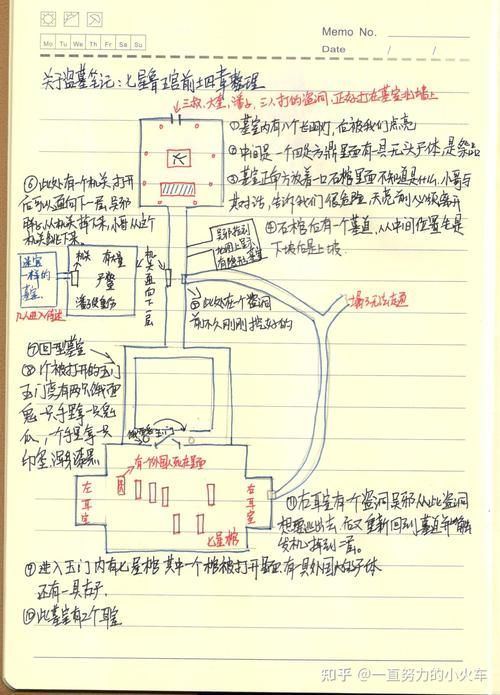 Memo No.
Mo Tu We Th Fr Sa Su
Date / /
关于盗墓笔记:七星鲁王宫前十四章整理
三叔,大奎,潘子,三人打的盗洞,正好打在墓室的墙上
①墓室内有八个长明灯,后被我们点亮
②中间是一个四足方鼎里面有具无头尸体,是祭品
③墓室正前方放着一口石棺里面不知道是什么,小哥与
其对话,告诉我们很危险,天亮前必须离开
④石棺后有一个墓道,从中间位置先是
下坡后是上坡
⑥此处有个机关,打开
后可以通向下一层,吴邪
小哥从这个
机关跳下来
迷宫
一样的
墓室
几人进入
机关
有大奎
潘子
机关通向下一层
⑤此处有个盗洞
前不久刚刚挖好的
塌了无法走通
⑦回型墓室
⑧个被打开的玉门
玉门旁有两个饿面
鬼一只手拿一只鬼
爪,一个手拿一只
印玺,浑身漆黑
玉门
有个外国人死在里面
左耳室
右耳室
七星棺
⑪右耳室有个盗洞吴邪从此处盗洞
想要逃出去,后又重新回到墓道
⑨进入玉门内有七星棺其中一个棺被打开里面有具外国人的尸体
还有一具女尸
⑩此墓室有2个耳室
知乎 @一直努力的小火车